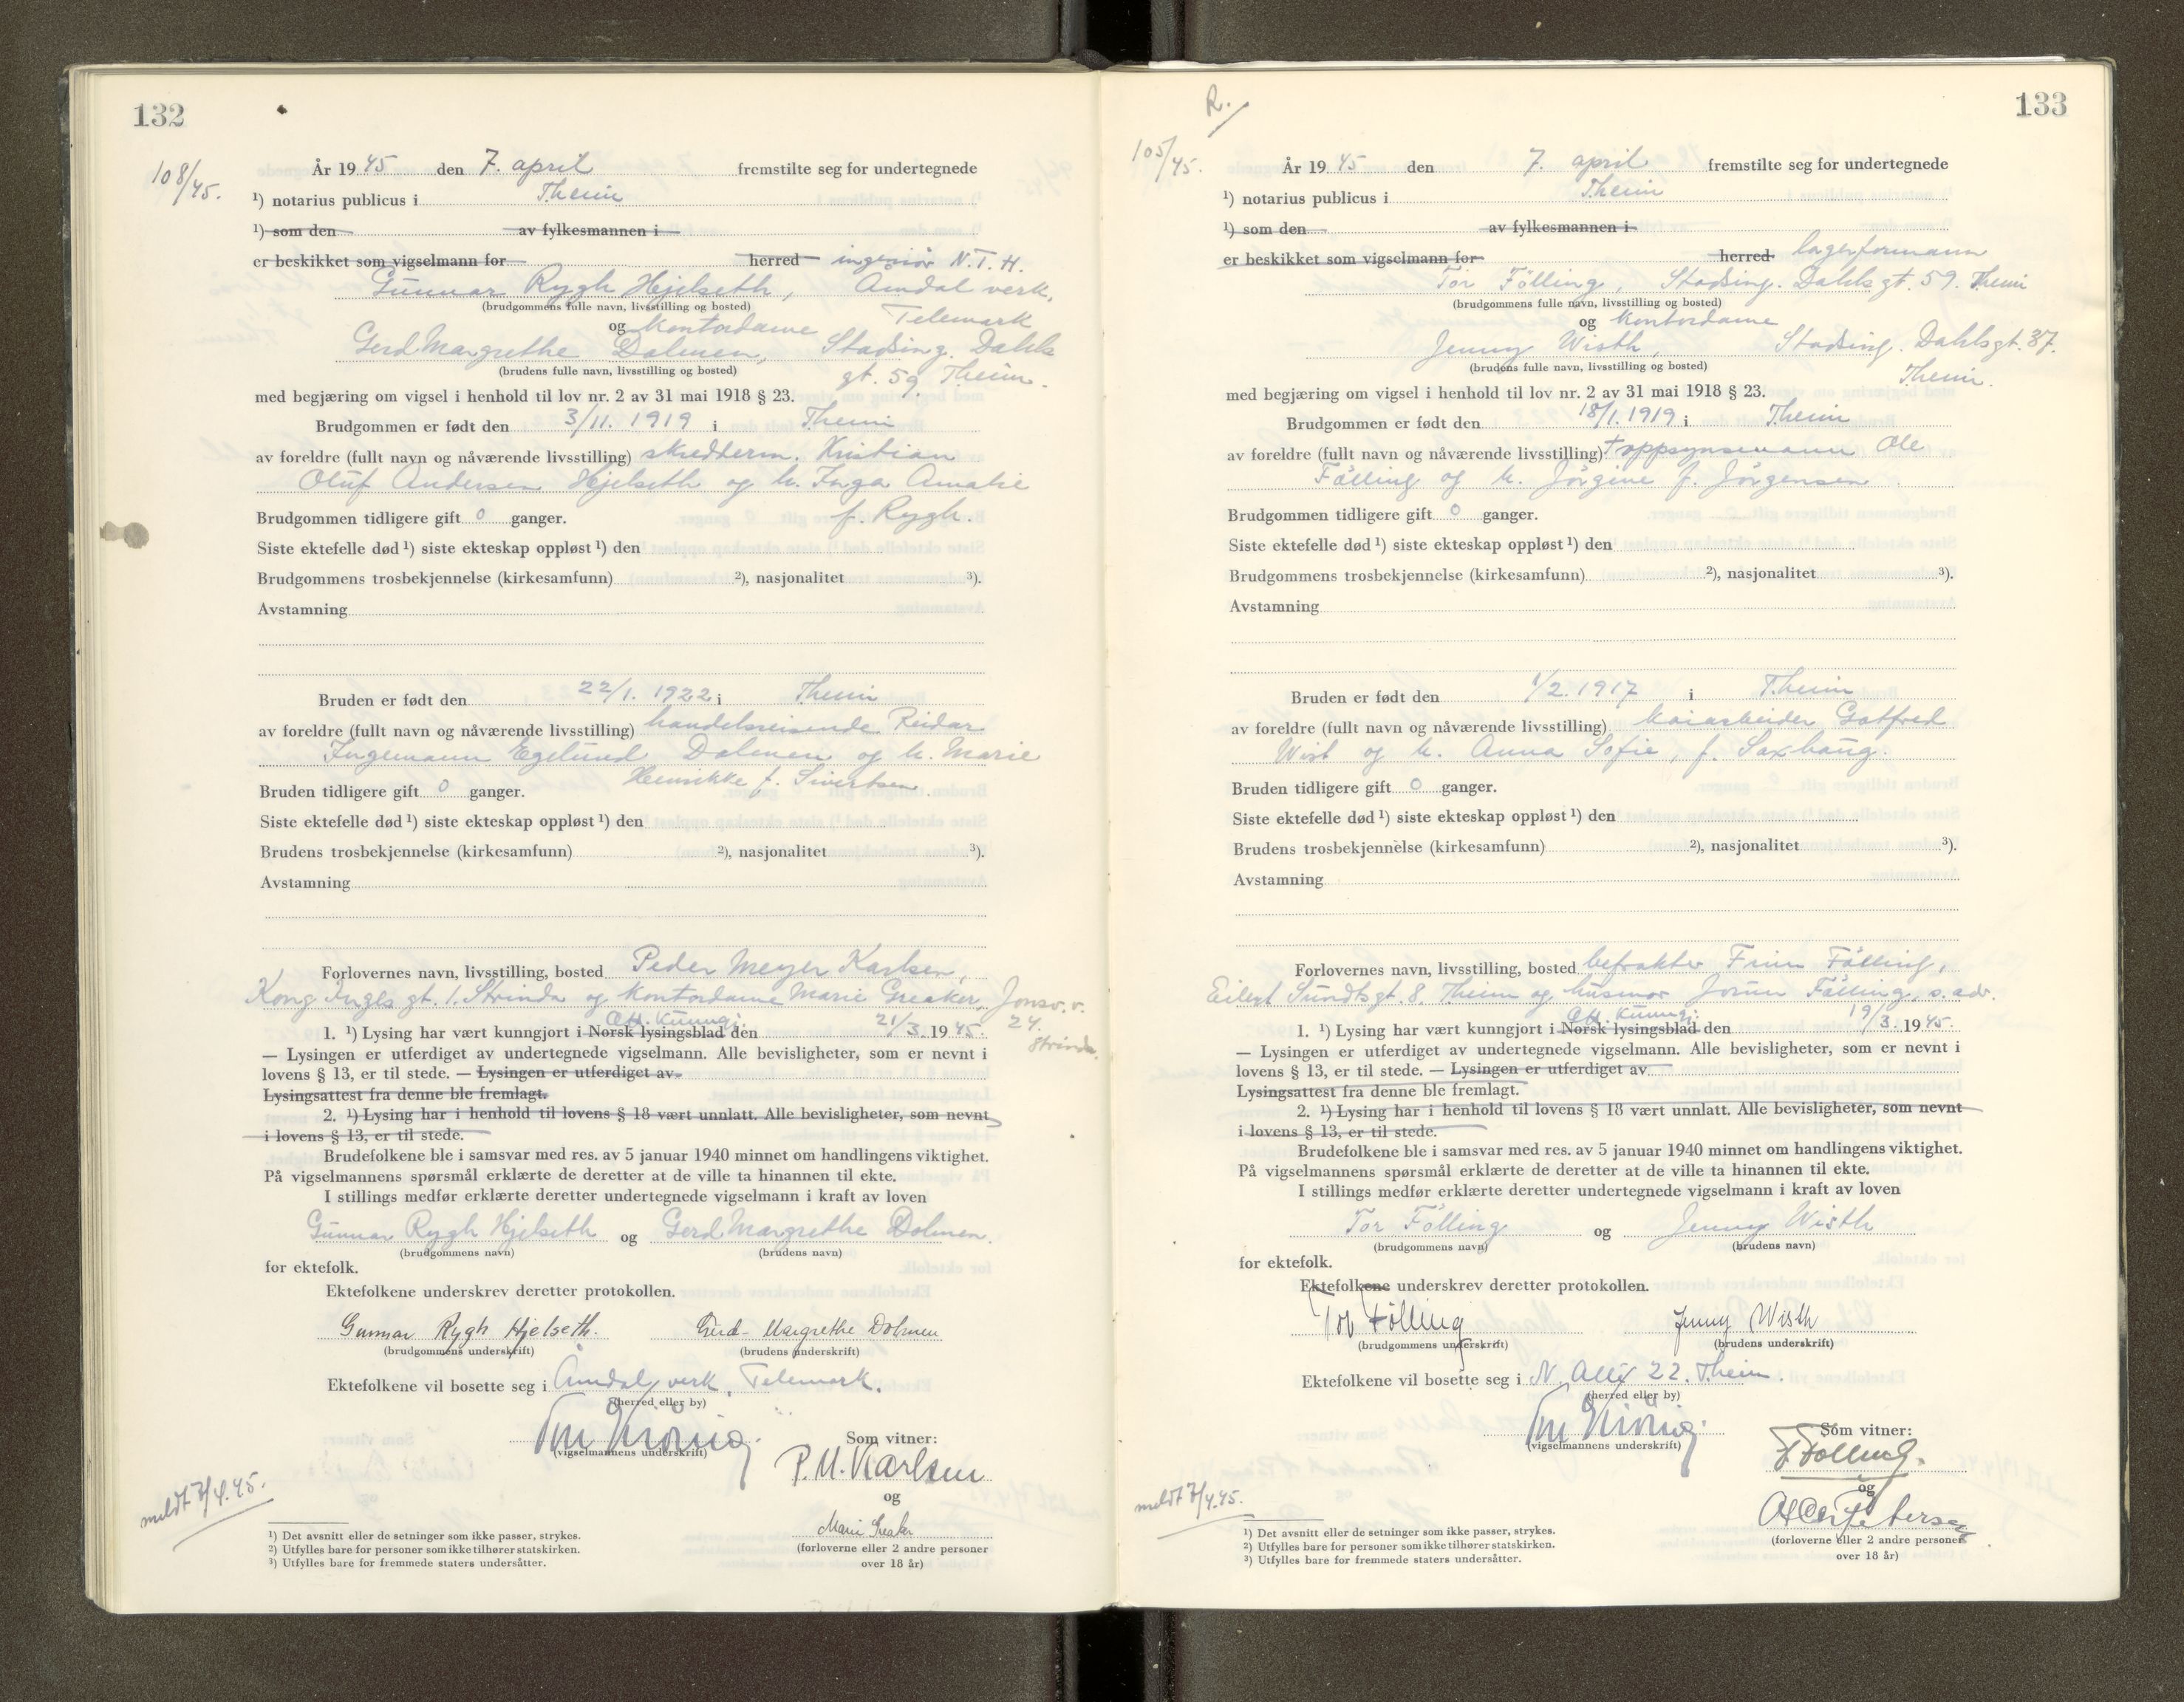 132
108/45.
År 1945 den 7. april fremstilte seg for undertegnede
¹) notarius publicus i Theim
¹) som den av fylkesmannen i
er beskikket som vigselmann for herred ingeniør N.T.H.
Gunnar Rygh Hjelseth, Åmdal verk,
(brudgommens fulle navn, livsstilling og bosted)
Telemark
og kontordame
Gerd Margrethe Dolmen, Stadsing. Dahls
(brudens fulle navn, livsstilling og bosted)
gt. 59, Theim.
med begjæring om vigsel i henhold til lov nr. 2 av 31 mai 1918 § 23.
Brudgommen er født den 3/11. 1919 i Theim
av foreldre (fullt navn og nåværende livsstilling) skredderm. Kristian
Oluf Andersen Hjelseth og h. Inga Amalie
f. Rygh.
Brudgommen tidligere gift 0 ganger.
Siste ektefelle død ¹) siste ekteskap oppløst ¹) den
Brudgommens trosbekjennelse (kirkesamfunn) ²), nasjonalitet ³).
Avstamning
Bruden er født den 22/1. 1922 i Theim
av foreldre (fullt navn og nåværende livsstilling) handelsreisende Reidar
Ingemann Egelund Dolmen og h. Marie
Henrikke f. Sivertsen.
Bruden tidligere gift 0 ganger.
Siste ektefelle død ¹) siste ekteskap oppløst ¹) den
Brudens trosbekjennelse (kirkesamfunn) ²), nasjonalitet ³).
Avstamning
Forlovernes navn, livsstilling, bosted Peder Meyer Karlsen,
Kong Inges gt. 1. Strinda og kontordame Marie Greaker, Jonsv. v.
24. Strinda.
Off. kunngj.
1. ¹) Lysing har vært kunngjort i Norsk lysingsblad den 21/3. 1945.
— Lysingen er utferdiget av undertegnede vigselmann. Alle bevisligheter, som er nevnt i
lovens § 13, er til stede. — Lysingen er utferdiget av
Lysingsattest fra denne ble fremlagt.
2. ¹) Lysing har i henhold til lovens § 18 vært unnlatt. Alle bevisligheter, som nevnt
i lovens § 13, er til stede.
Brudefolkene ble i samsvar med res. av 5 januar 1940 minnet om handlingens viktighet.
På vigselmannens spørsmål erklærte de deretter at de ville ta hinannen til ekte.
I stillings medfør erklærte deretter undertegnede vigselmann i kraft av loven
Gunnar Rygh Hjelseth og Gerd Margrethe Dolmen.
(brudgommens navn) (brudens navn)
for ektefolk.
Ektefolkene underskrev deretter protokollen.
Gunnar Rygh Hjelseth. Gerd-Margrethe Dolmen
(brudgommens underskrift) (brudens underskrift)
Ektefolkene vil bosette seg i Åmdal verk, Telemark.
(herred eller by)
(vigselmannens underskrift)
Som vitner:
P.M. Karlsen
og
Marie Greaker
(forloverne eller 2 andre personer
over 18 år)
meldt 7/4.45.
¹) Det avsnitt eller de setninger som ikke passer, strykes.
²) Utfylles bare for personer som ikke tilhører statskirken.
³) Utfylles bare for fremmede staters undersåtter.
R.
133
105/45.
År 1945 den 7. april fremstilte seg for undertegnede
¹) notarius publicus i Theim
¹) som den av fylkesmannen i
er beskikket som vigselmann for herred lagerformann
Tor Fölling, Stadsing. Dahls gt. 59. Theim
(brudgommens fulle navn, livsstilling og bosted)
og kontordame
Jenny Wisth, Stadsing. Dahls gt. 37.
(brudens fulle navn, livsstilling og bosted)
Theim.
med begjæring om vigsel i henhold til lov nr. 2 av 31 mai 1918 § 23.
Brudgommen er født den 18/1. 1919 i Theim
av foreldre (fullt navn og nåværende livsstilling) + oppsynsmann Ole
Fölling og h. Jörgine f. Jörgensen.
Brudgommen tidligere gift 0 ganger.
Siste ektefelle død ¹) siste ekteskap oppløst ¹) den
Brudgommens trosbekjennelse (kirkesamfunn) ²), nasjonalitet ³).
Avstamning
Bruden er født den 1/2. 1917 i Theim
av foreldre (fullt navn og nåværende livsstilling) kaiarbeider Gotfred
Wist og h. Anna Sofie, f. Saxhaug.
Bruden tidligere gift 0 ganger.
Siste ektefelle død ¹) siste ekteskap oppløst ¹) den
Brudens trosbekjennelse (kirkesamfunn) ²), nasjonalitet ³).
Avstamning
Forlovernes navn, livsstilling, bosted befrakter Finn Fölling,
Eilert Sundts gt. 8. Theim og husmor Jorun Fölling, s. adr.
Off. kunngj.
1. ¹) Lysing har vært kunngjort i Norsk lysingsblad den 19/3. 1945.
— Lysingen er utferdiget av undertegnede vigselmann. Alle bevisligheter, som er nevnt i
lovens § 13, er til stede. — Lysingen er utferdiget av
Lysingsattest fra denne ble fremlagt.
2. ¹) Lysing har i henhold til lovens § 18 vært unnlatt. Alle bevisligheter, som nevnt
i lovens § 13, er til stede.
Brudefolkene ble i samsvar med res. av 5 januar 1940 minnet om handlingens viktighet.
På vigselmannens spørsmål erklærte de deretter at de ville ta hinannen til ekte.
I stillings medfør erklærte deretter undertegnede vigselmann i kraft av loven
Tor Fölling og Jenny Wisth
(brudgommens navn) (brudens navn)
for ektefolk.
Ektefolkene underskrev deretter protokollen.
Tor Fölling Jenny Wisth
(brudgommens underskrift) (brudens underskrift)
Ektefolkene vil bosette seg i N. Allé 22. Theim.
(herred eller by)
(vigselmannens underskrift)
Som vitner:
F Folling.
og
(forloverne eller 2 andre personer
over 18 år)
meldt 7/4.45.
¹) Det avsnitt eller de setninger som ikke passer, strykes.
²) Utfylles bare for personer som ikke tilhører statskirken.
³) Utfylles bare for fremmede staters undersåtter.